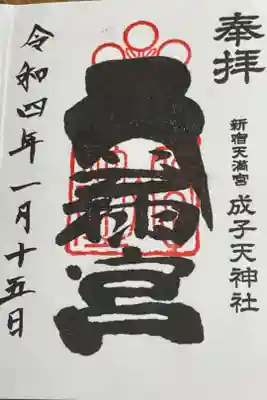 奉拝
新宿天満宮 成子天神社
宮
令和四年一月十五日